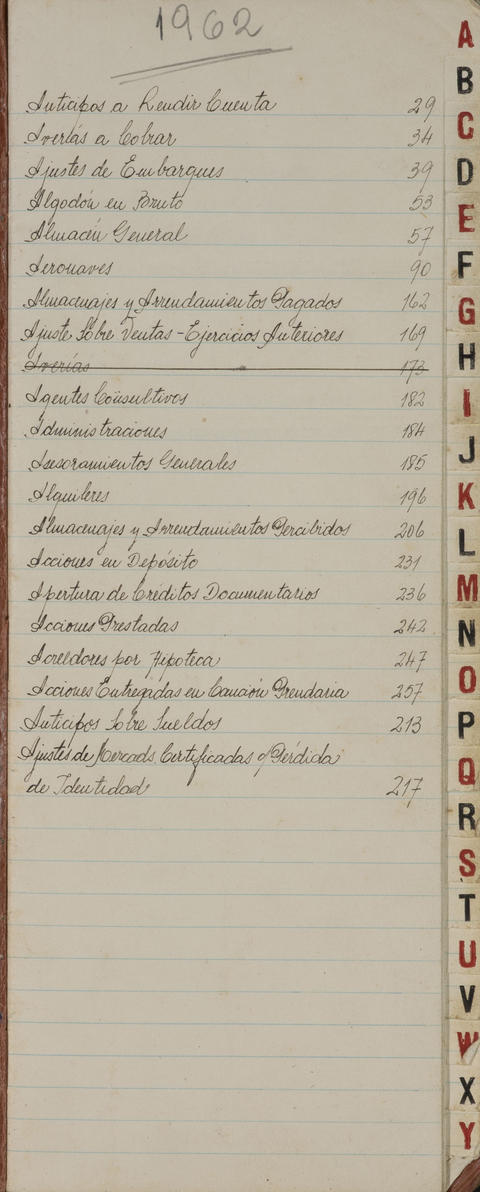 1962
Anticipos a Rendir Cuenta 29
Averías a Cobrar 34
Ajustes de Embarques 39
Algodón en Bruto 53
Almacén General 57
Aeronaves 90
Almacenajes y Arrendamientos Pagados 162
Ajuste Sobre Ventas - Ejercicios Anteriores 169
Averías 173
Agentes Consultivos 182
Administraciones 184
Asesoramientos Generales 185
Alquileres 196
Almacenajes y Arrendamientos Percibidos 206
Acciones en Depósito 231
Apertura de Créditos Documentarios 236
Acciones Prestadas 242
Acreedores por Hipoteca 247
Acciones Entregadas en Caución Prendaria 257
Anticipos Sobre Sueldos 213
Ajustes de Mercads. Certificadas c/ Pérdida
de Identidad 217
A
B
C
D
E
F
G
H
I
J
K
L
M
N
O
P
Q
R
S
T
U
V
W
X
Y